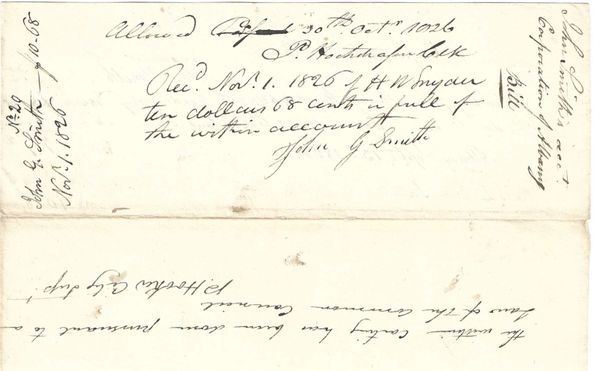 Allowed 30th Octr 1826
P. Hochstrasser Clk
Recd. Novr. 1. 1826 of H W Snyder
ten dollars 68 cents in full of
the within account
John G Smith
No 29
John G. Smith $10.68
Novr. 1. 1826
John Smith's acct.
Corporation of Albany
Bill
the within Carting has been done pursuant to a
Law of the Common Council
P. Hooker City Supt